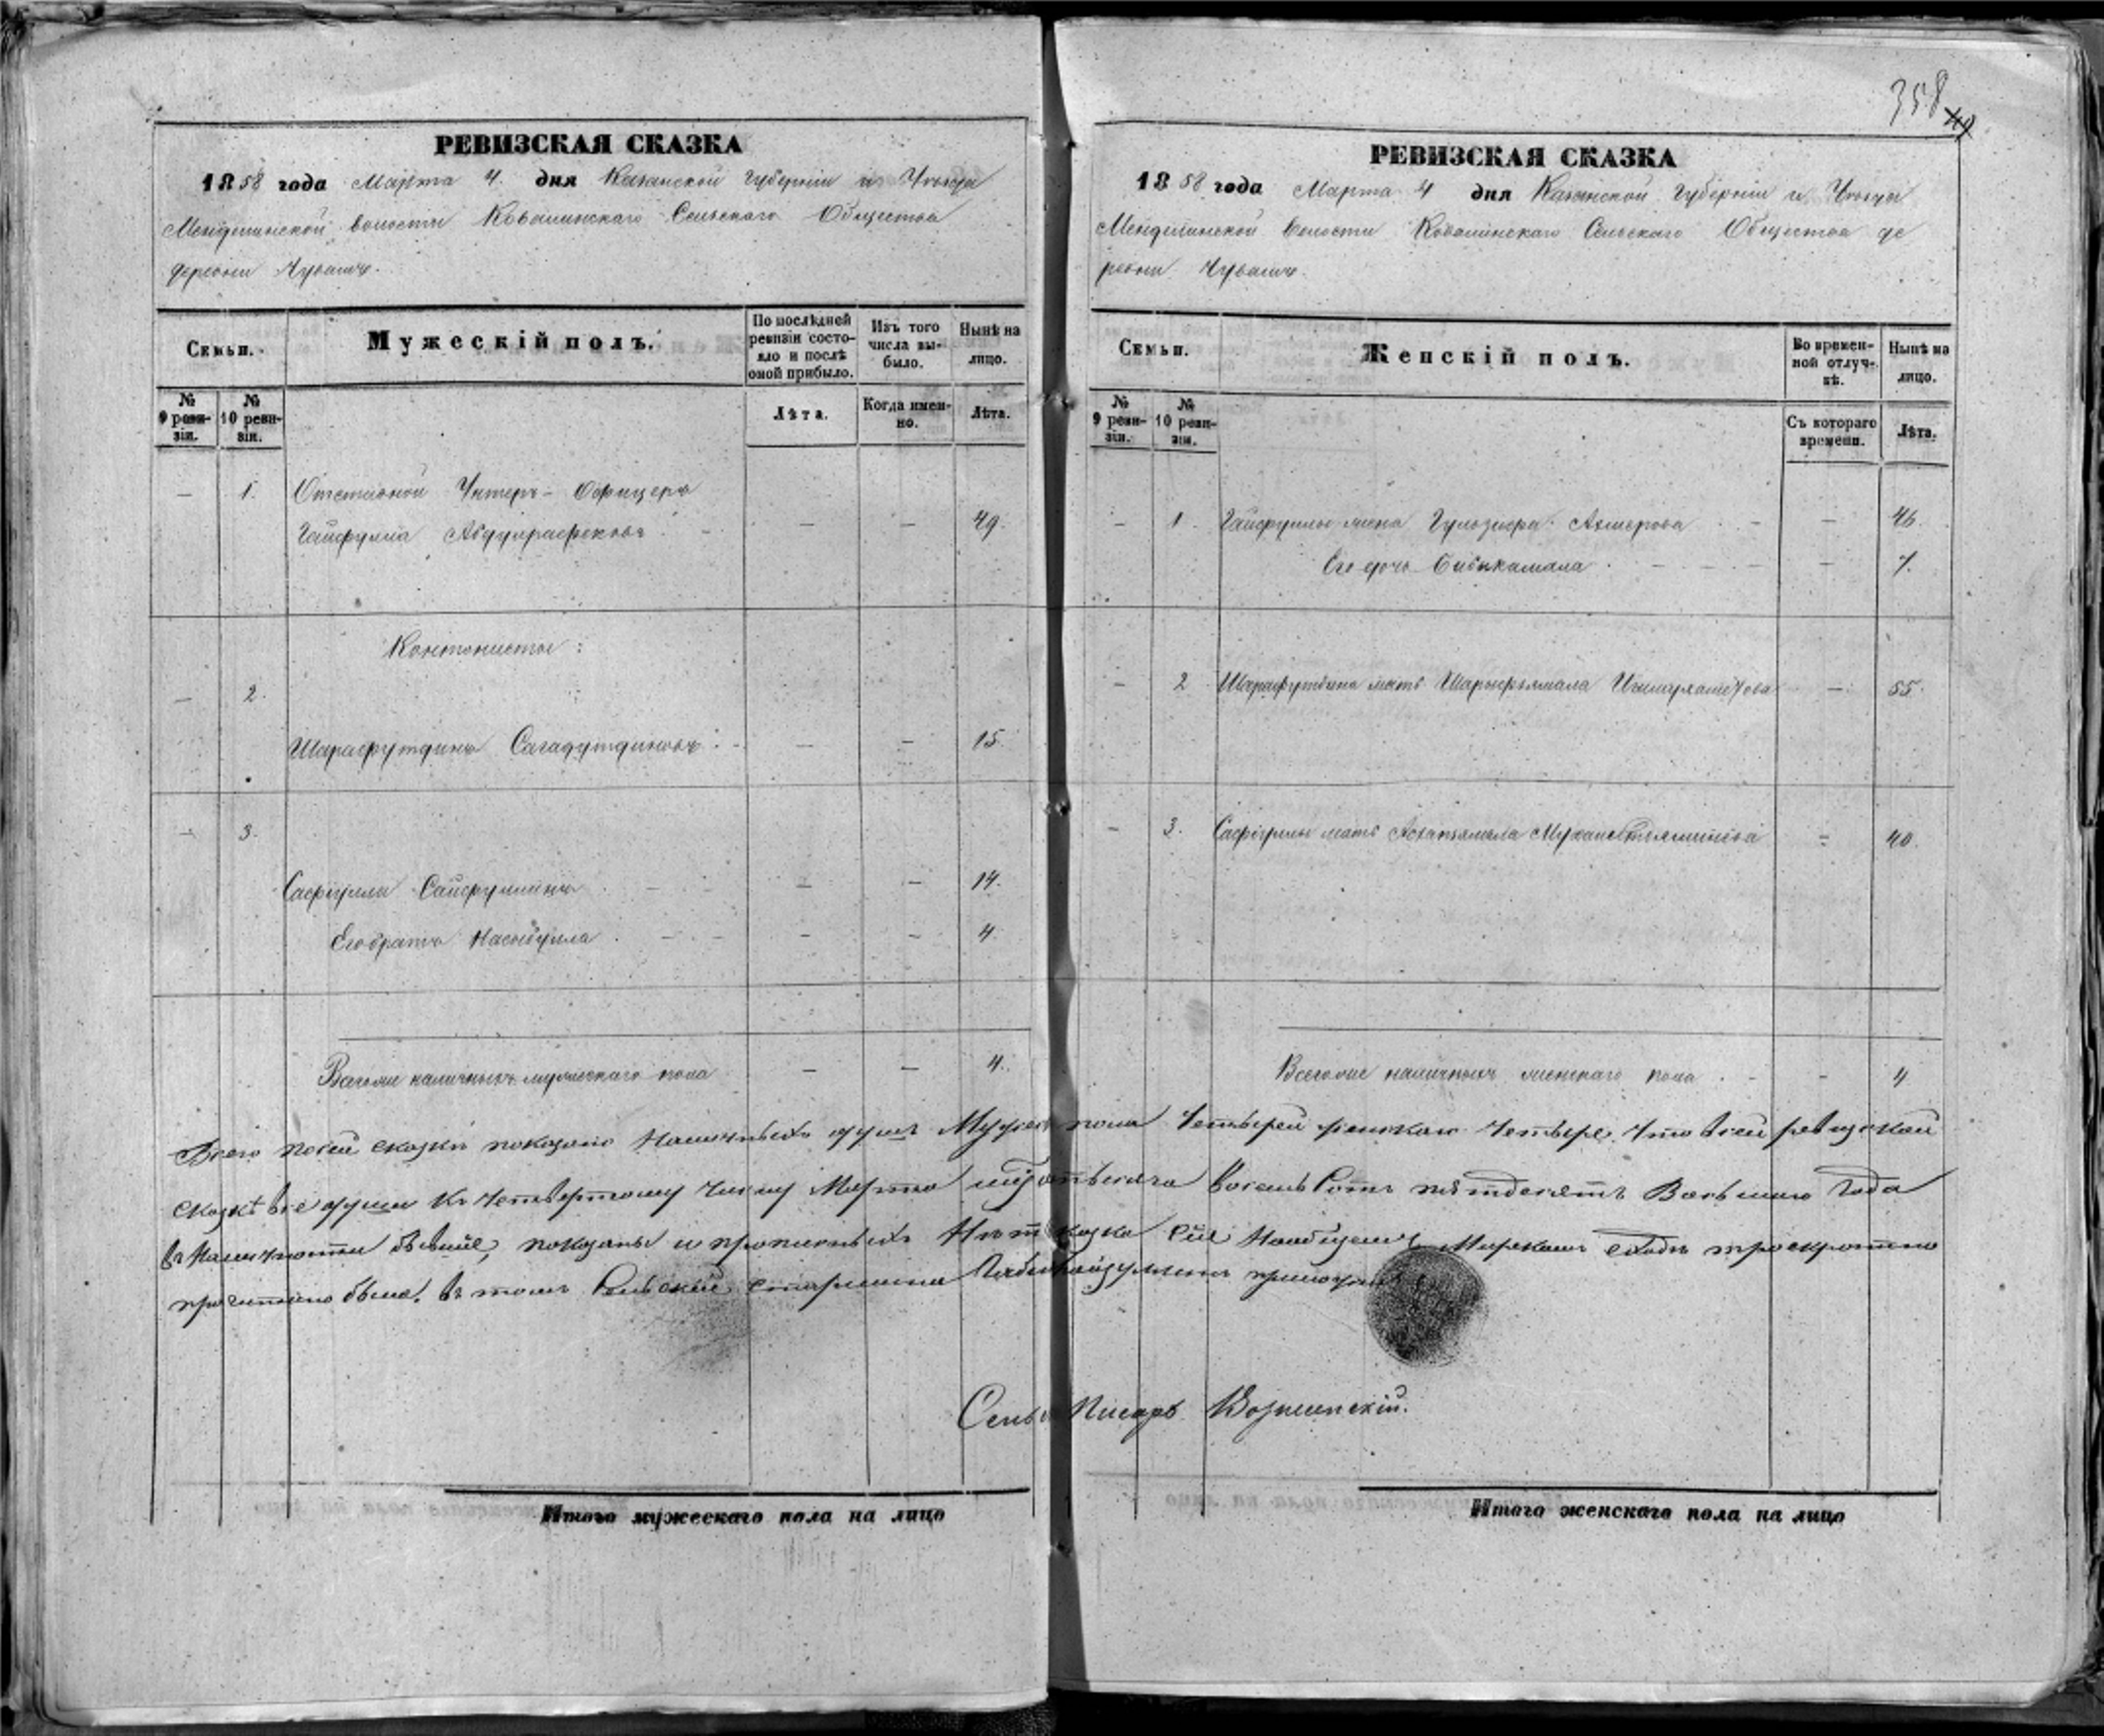 358 49
РЕВИЗСКАЯ СКАЗКА
1858 года Марта 4. дня Казанской Губерніи и Уѣзда
Менделинской волости Ковалинскаго Сельскаго Общества
деревни Чувашъ.
Семьи.
Мужескій полъ.
По послѣдней ревизіи состояло и послѣ оной прибыло.
Изъ того числа выбыло.
Нынѣ на лицо.
№ 9 ревизіи.
№ 10 ревизіи.
Лѣта.
Когда именно.
Лѣта.
— 1. Отставной Унтеръ-Офицеръ
Гайфулла Абдулрафековъ — — 49.
Кантонисты:
— 2.
Шарафутдинъ Сагадутдиновъ — — 15.
— 3.
Сафіулла Сайфуллинъ — — 14.
Его братъ Насибулла — — 4.
Всего наличныхъ мужескаго пола — — 4.
РЕВИЗСКАЯ СКАЗКА
1858 года Марта 4 дня Казанской Губерніи и Уѣзда
Менделинской волости Ковалинскаго Сельскаго Общества де
ревни Чувашъ.
Семьи.
Женскій полъ.
Во временной отлучкѣ.
Нынѣ на лицо.
№ 9 ревизіи.
№ 10 ревизіи.
Съ котораго времени.
Лѣта.
— 1. Гайфуллы жена Гульзифа Ахмерова — 46.
Его дочь Бибикамала — 7.
— 2 Шарафутдина мать — 55.
— 3. Сафіуллы мать — 40.
Всего же наличныхъ женскаго пола — 4
Всего по сей сказкѣ показано наличныхъ душъ Мужеск пола Четыре и женскаго Четыре. Что в сей ревизской
сказкѣ все души къ Четвертому числу Марта восемь Сотъ пятдесятъ Восьмаго Года
въ наличности бывшіе, показаны и прописныхъ Нѣт сказка Сія сходѣ троекратно
прочитано было. въ томъ Сельскій старшина приложилъ
Сельс Писарь
Итого мужескаго пола на лицо
Итого женскаго пола на лицо